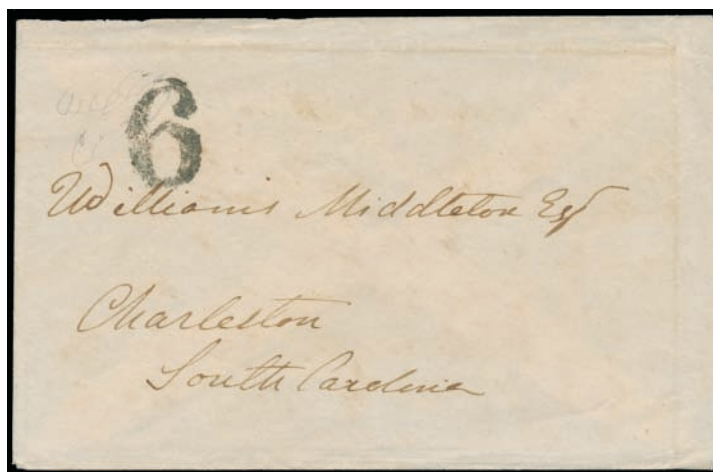 6
Williams Middleton Esqr
Charleston
South Carolina